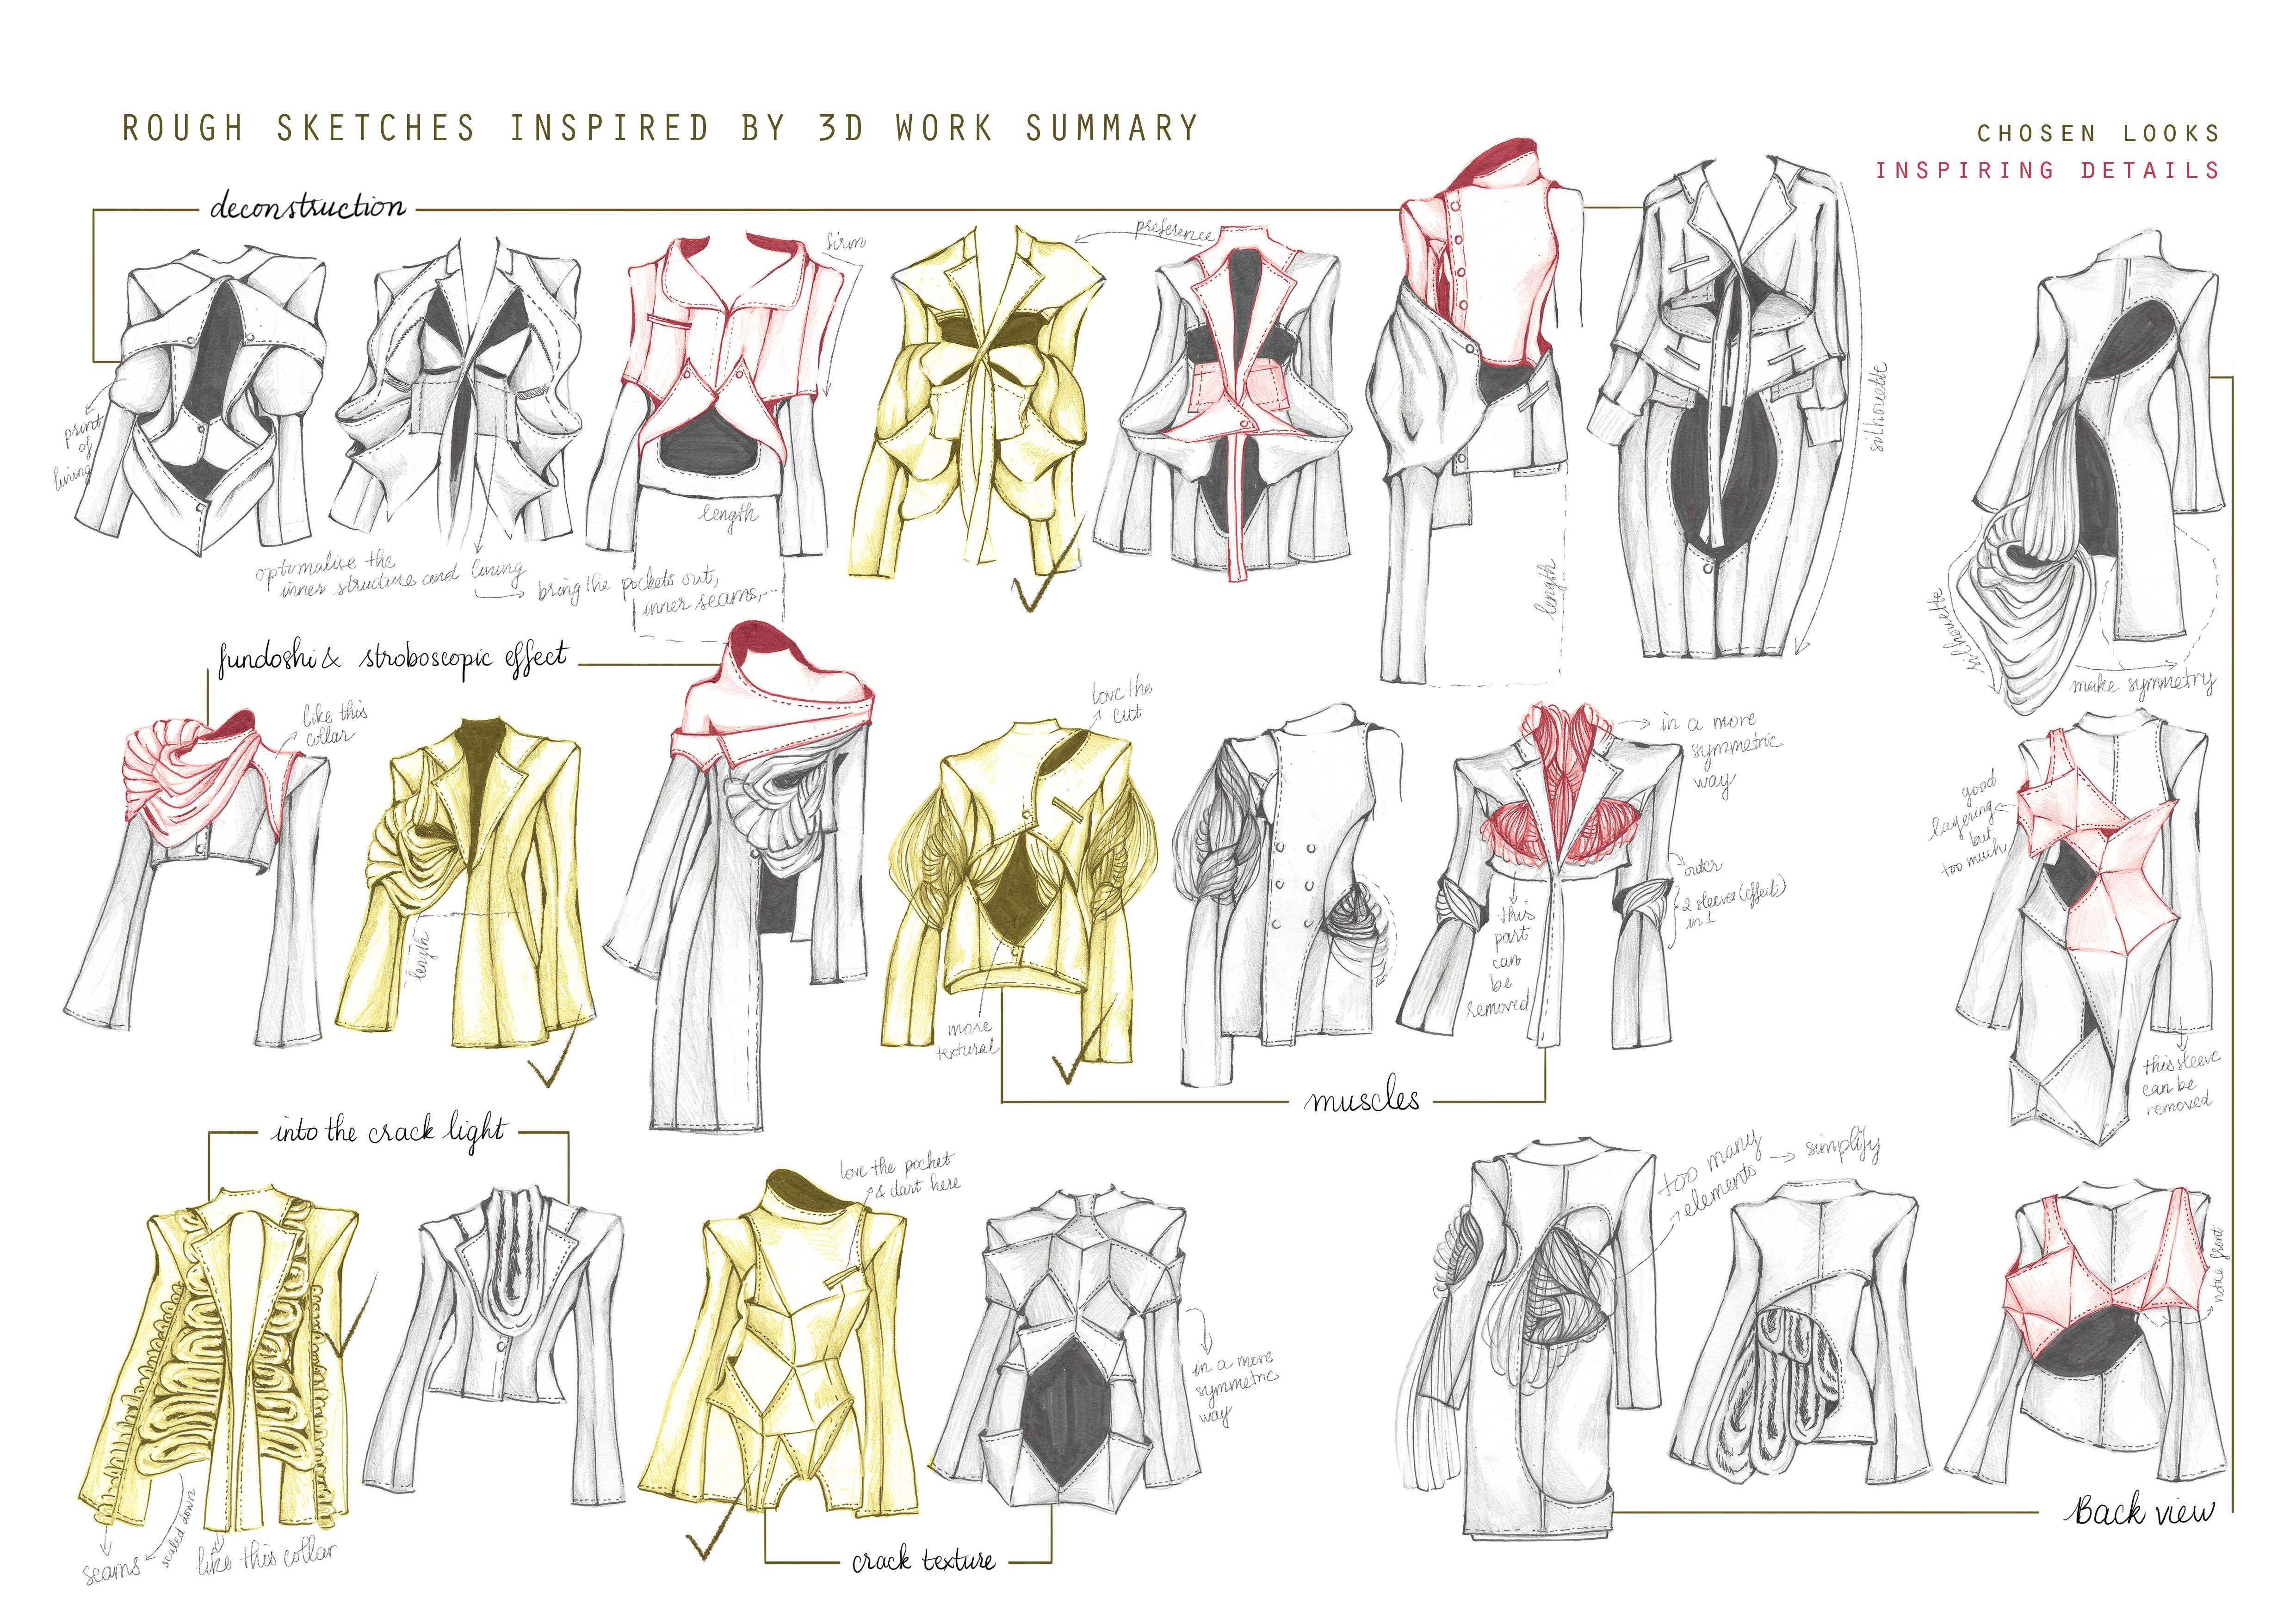 ROUGH SKETCHES INSPIRED BY 3D WORK SUMMARY
CHOSEN LOOKS
INSPIRING DETAILS
deconstruction
preference
print
of
lining
optimalise the
inner structure and lining
bring the pockets out,
inner seams,...
length
length
silhouette
silhouette
make symmetry
fundoshi & stroboscopic effect
like this
collar
length
love the
cut
more
textural
in a more
symmetric
way
outer
2 sleeves (effect)
in 1
this
part
can
be
removed
muscles
good
layering
but
too much
this sleeve
can be
removed
into the crack light
seams
scaled down
like this collar
love the pocket
& dart here
in a more
symmetric
way
crack texture
too many
elements
simplify
notice front
Back view